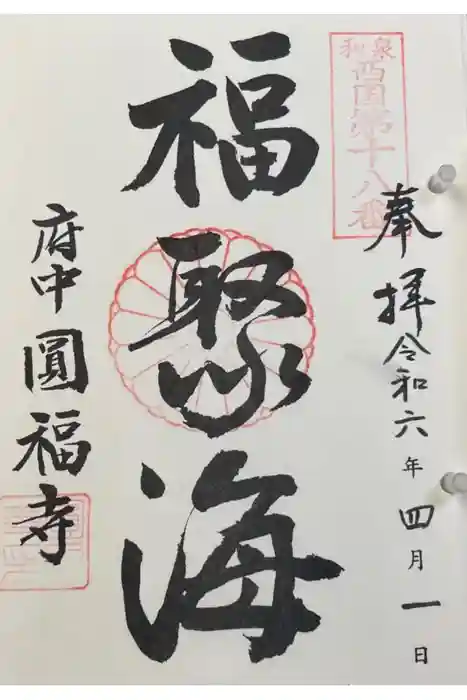 奉拝
令和六年四月一日
和泉
西国第十八番
福聚海
府中
圓福寺